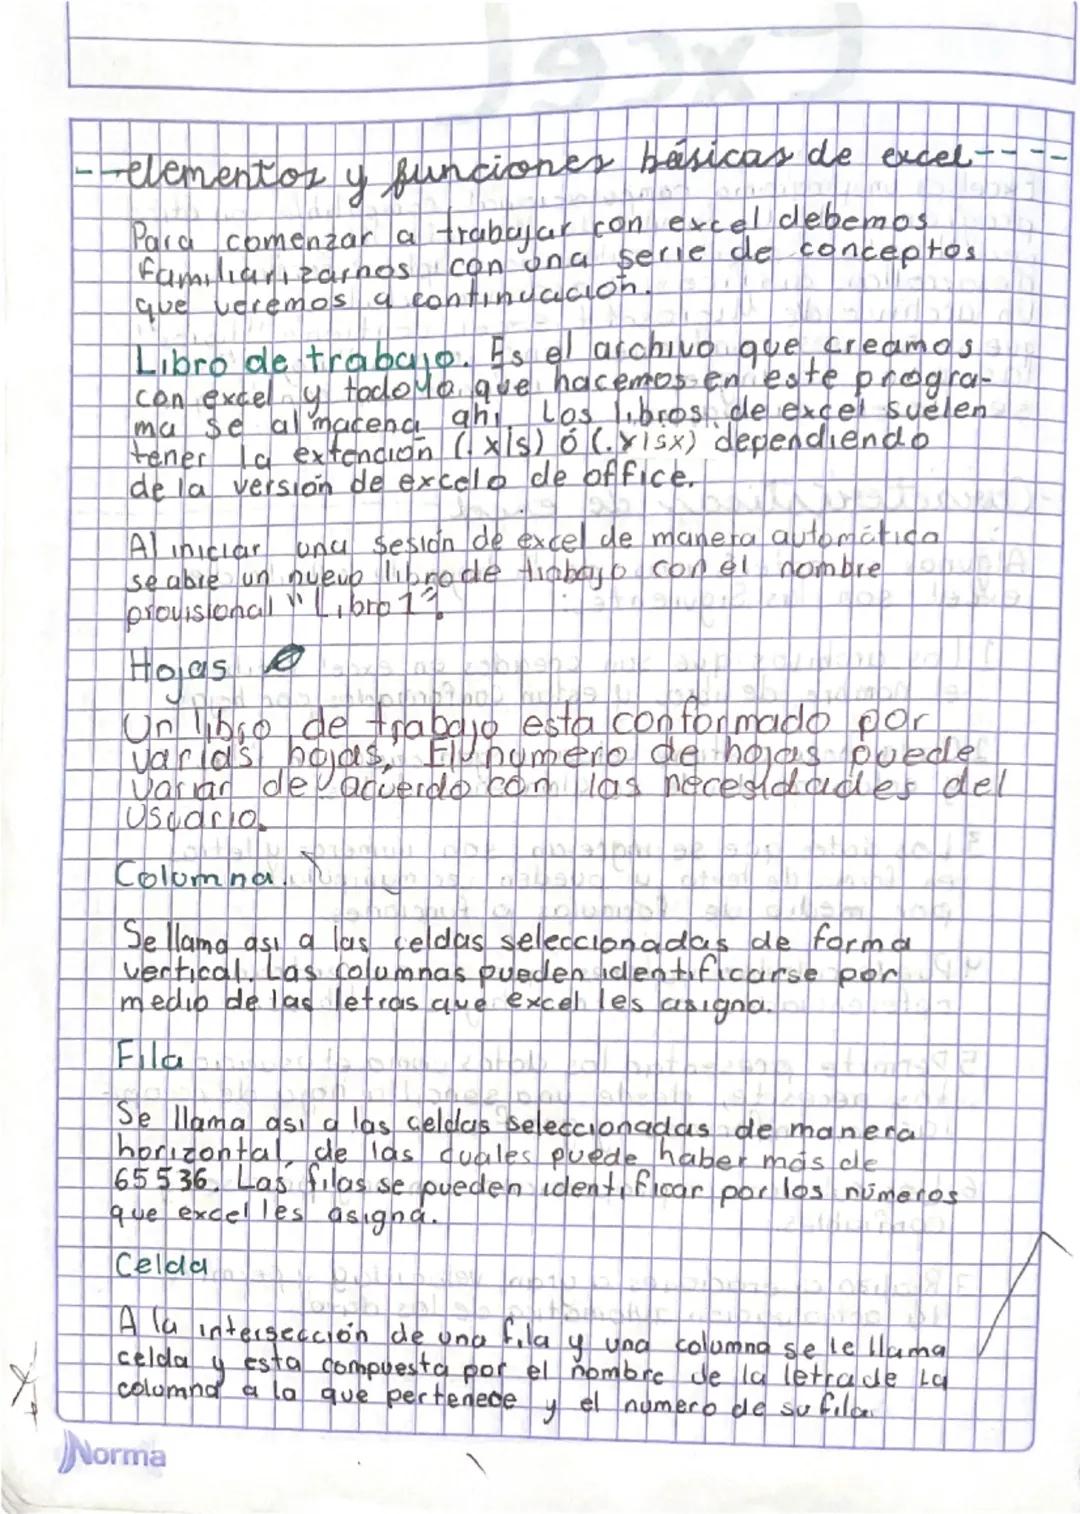 --elementos y funciones básicas de excel----
Para comenzar a trabajar con excel debemos
familiarizarnos con una serie de conceptos
que veremos a continuación.
Libro de trabajo. Es el archivo que creamos
con excel y todo lo que hacemos en este progra-
ma se almacena ahi. Los libros de excel suelen
tener la extención (.xls) ó (.xlsx) dependiendo
de la versión de excel o de office.
Al iniciar una sesión de excel de manera automática
se abre un nuevo libro de trabajo con el nombre
provisional "Libro 1".
Hojas
Un libro de trabajo esta conformado por
varias hojas. El numero de hojas puede
variar de acuerdo con las necesidades del
usuario.
Columna.
Se llama asi a las celdas seleccionadas de forma
vertical. Las columnas pueden identificarse por
medio de las letras que excel les asigna.
Fila
Se llama asi a las celdas seleccionadas de manera
horizontal, de las cuales puede haber más de
65536. Las filas se pueden identificar por los números
que excel les asigna.
Celda
A la intersección de una fila y una columna se le llama
celda y esta compuesta por el nombre de la letra de la
columna a la que pertenece y el numero de su fila.
Norma